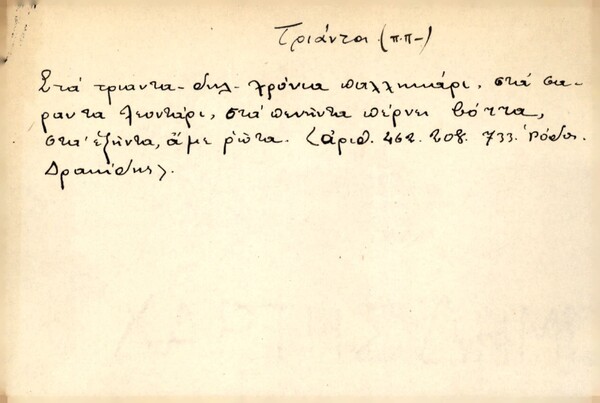 Τριάντα (π.π-)
Στά τριαντα-δηλ-χρόνια παλληκάρι, στά σα-
ραντα λεοντάρι, στά πενήντα πέρνει βόττα,
στα ἑξήντα, ἄμε ρώτα. (ἀριθ. 462. 208. 733. Ρόδος.
Δρακίδης).